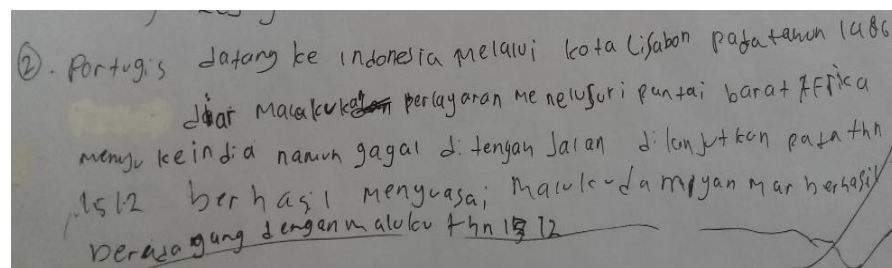 ②. Portugis datang ke indonesia melalui kota Lisabon pada tahun 1486
diar Malakukan perlayaran menelusuri pantai barat Afrika
menuju keindia namun gagal ditengah Jalan dilanjutkan pada thn
1512 berhasil menguasai Maluku dan myanmar berhasil
beradagang dengan maluku thn 1512